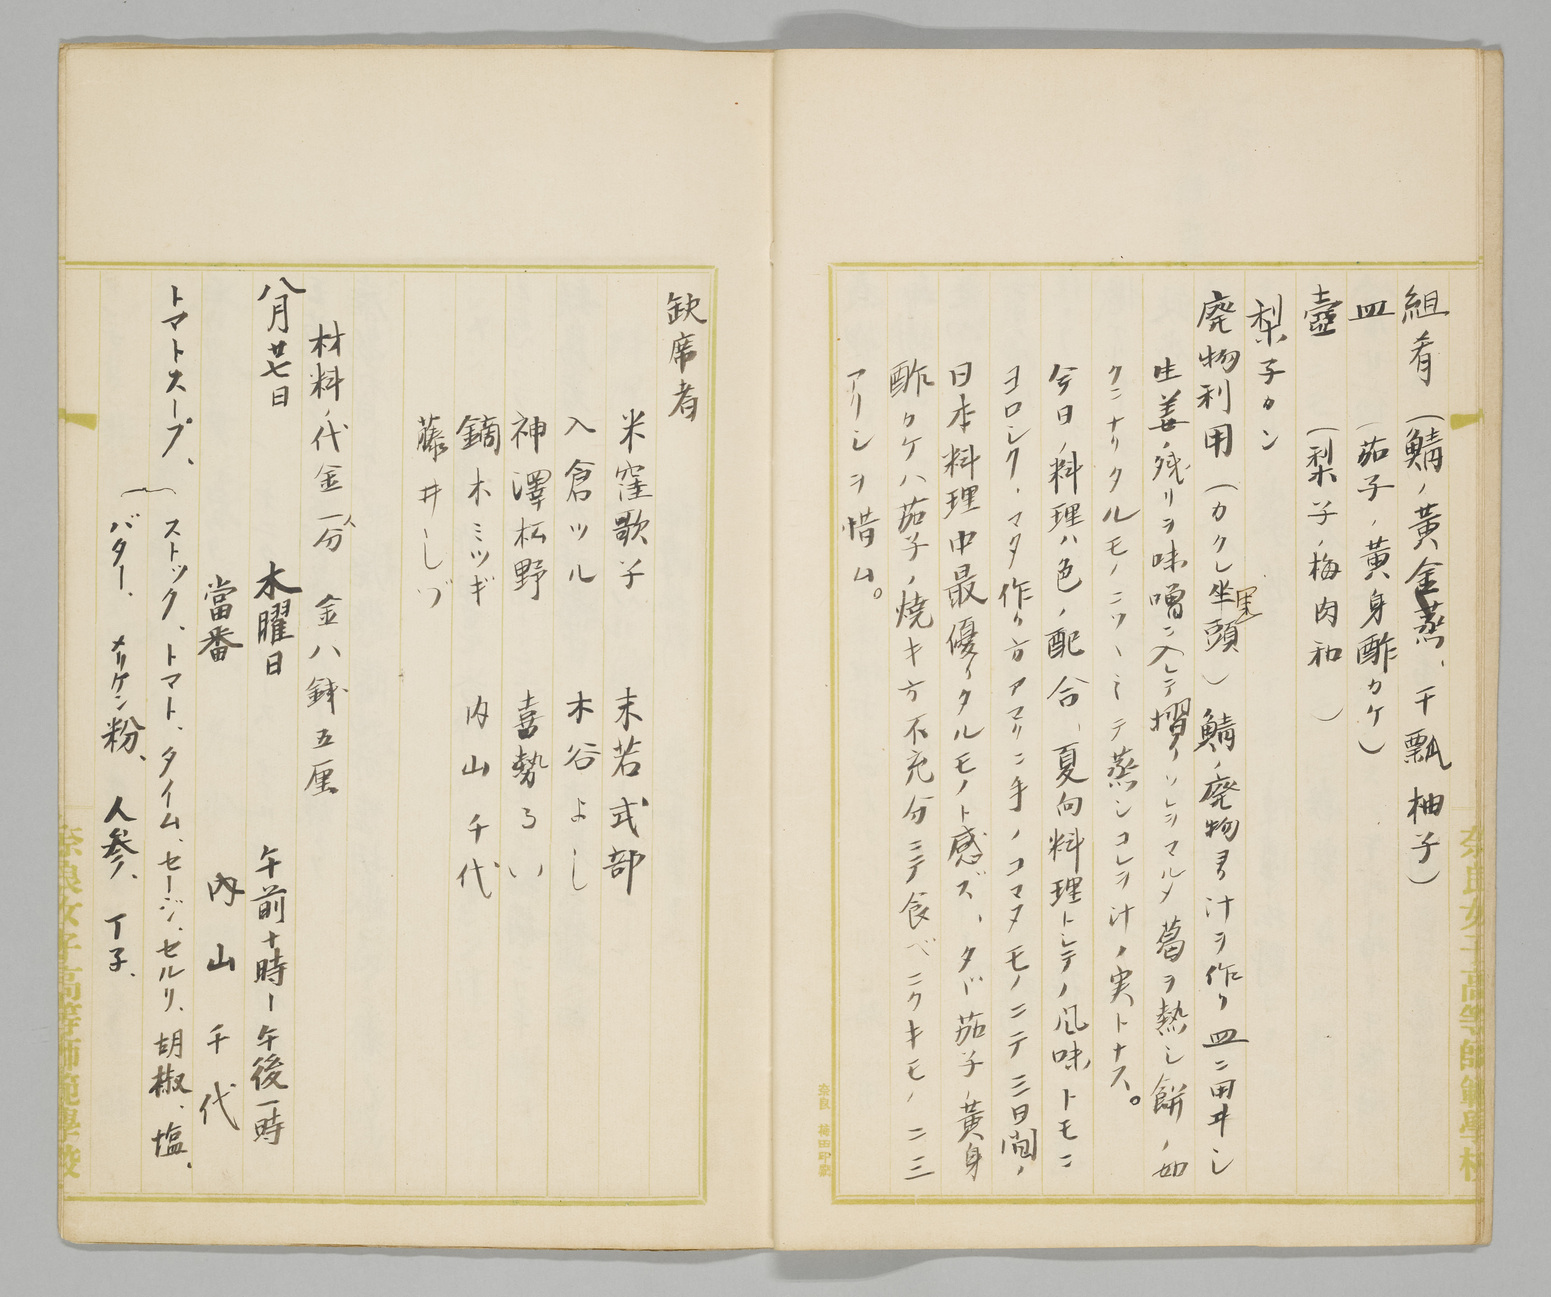 組肴（鯖ノ黄金蒸、干瓢柚子）
皿（茄子ノ黄身酢カケ）
壺（梨子ノ梅肉和）
梨子カン
廃物利用（カクレ坐頭）鯖ノ廃物ヨリ汁ヲ作リ皿ニ用ヰシ
生姜ノ残リヲ味噌ニ入レテ摺リソレヲマルメ葛ヲ熱シ餅ノ如
クニナリタルモノニツヽミテ蒸シコレヲ汁ノ実トナス。
今日ノ料理ハ色ノ配合、夏向料理トシテノ風味トモニ
ヨロシク、マタ作リ方アマリニ手ノコマヌモノニテ三日間ノ
日本料理中最優レタルモノト感ズ、タヾ茄子ノ黄身
酢カケハ茄子ノ焼キ方不充分ニテ食ベニクキモノ二三
アリシヲ惜ム。
奈良女子高等師範學校
欽席者
米窪歌子 末若式部
入倉ツル 木谷よし
神澤松野 喜勢るい
鏑木ミツギ 内山千代
藤井しづ
材料ノ代金一人分 金八銭五厘
八月廿七日 木曜日 午前十時ー午後一時
當番 内山千代
トマトスープ、（ストック、トマト、タイム、セージ、セルリ、胡椒、塩、
バター、メリケン粉、人参、丁子、
奈良女子高等師範學校